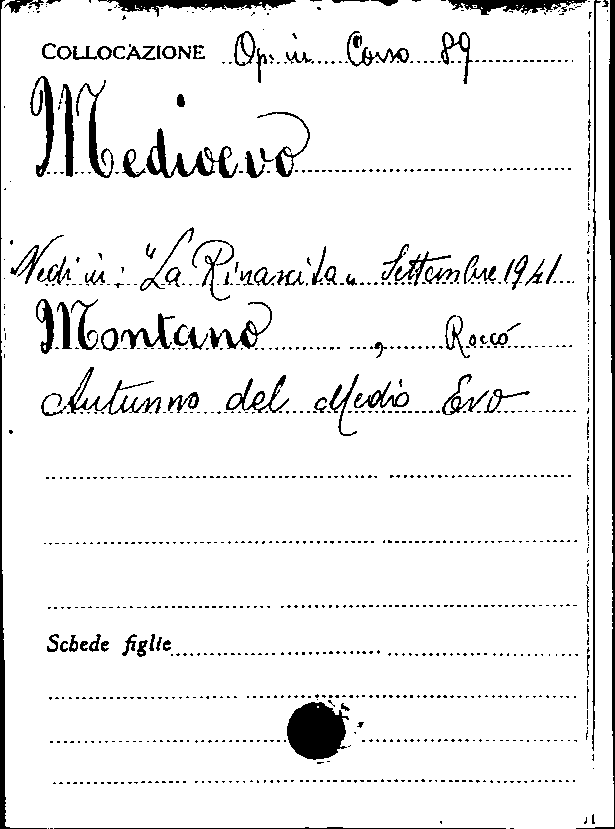 COLLOCAZIONE Op. in Corso 89
Medioevo
Vedi in: "La Rinascita" Settembre 1941
Montano, Rocco
Autunno del Medio Evo
Schede figlie